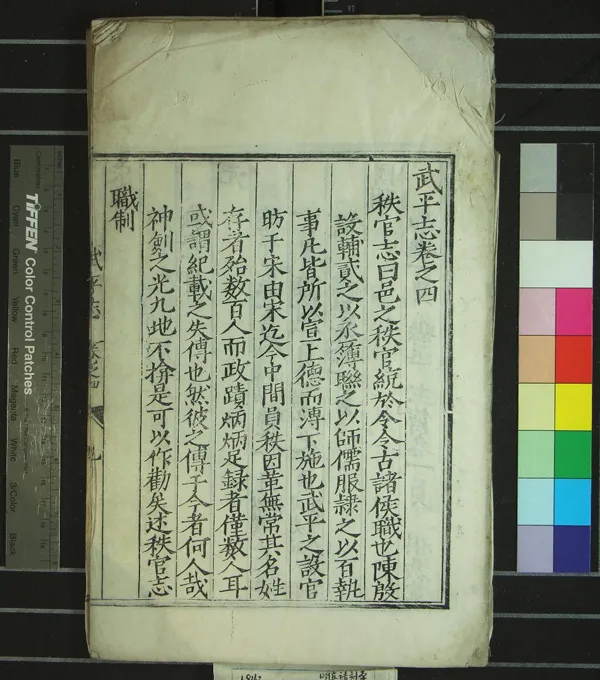 武平志卷之四
秩官志曰邑之秩官統於令令古諸侯職也陳殷
設輔貳之以丞簿聯之以師儒服隸之以百執
事凡皆所以宣上德而溥下施也武平之設官
昉于宋由宋迄今中間員秩因革無常其名姓
存者殆數百人而政蹟炳炳足録者僅數人耳
或謂紀載之失傳也然彼之傳于今者何人哉
神劍之光九地不揜是可以作勸矣述秩官志
職制
武平志
九
TIFFEN Color Control Patches
Blue
Cyan
Green
Yellow
Red
Magenta
White
3/Color
Black